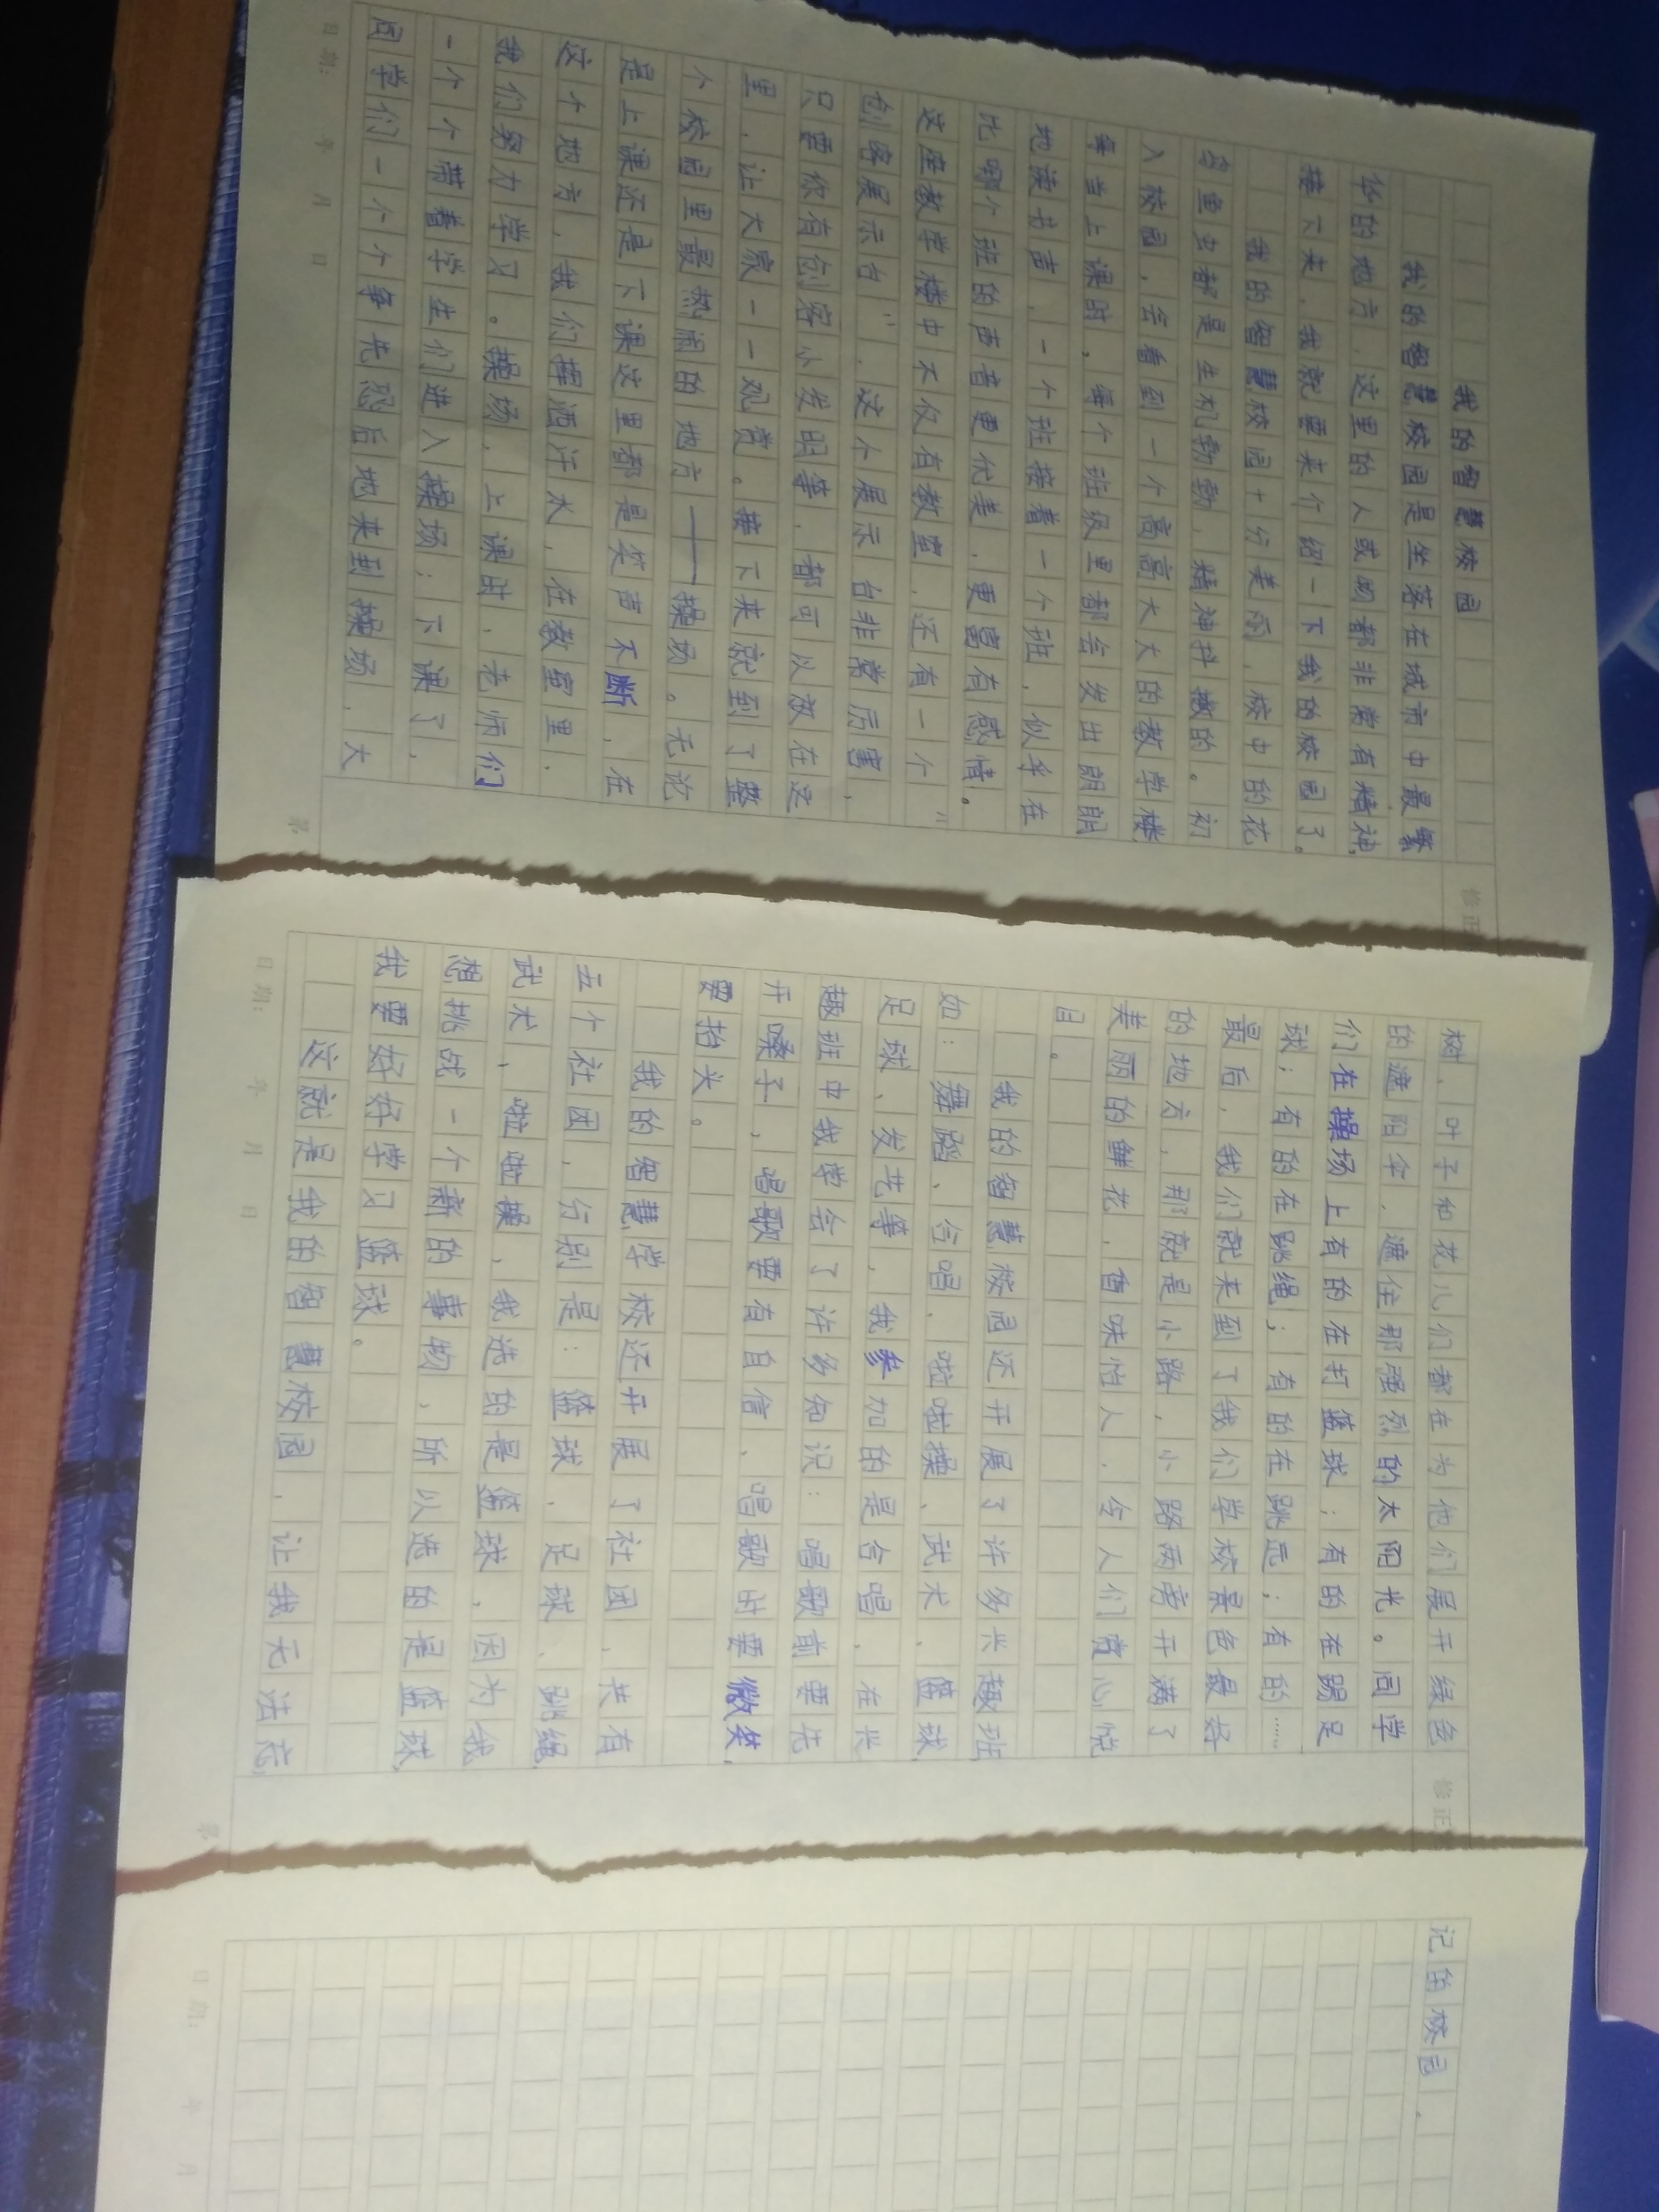 我的智慧校园
我的智慧校园是坐落在城市中最繁
华的地方，这里的人或物都非常有精神，
接下来，我就要来个绍一下我的校园了。
我的智慧校园十分美丽，校中的花
鸟鱼虫都是生机勃勃，精神抖擞的。初
入校园，会看到一个高高大大的教学楼
每当上课时，每个班级里都会发出朗朗
地读书声，一个班接着一个班，似乎在
比哪个班的声音更优美，更富有感情。
这座教学楼中不仅有教室，还有一个“
创客展示台”，这个展示台非常厉害，
只要你有创客小发明等，都可以放在这
里，让大家一一观赏。接下来就到了整
个校园里最热闹的地方——操场。无论
是上课还是下课这里都是笑声不断，在
这个地方，我们挥洒汗水，在教室里，
我们努力学习。操场，上课时，老师们
一个个带着学生们进入操场；下课了，
同学们一个个争先恐后地来到操场，大
日期： 年 月 日
第
修正
树、叶子和花儿们都在为他们展开绿色
的遮阳伞，遮住那强烈的太阳光。同学
们在操场上有的在打篮球；有的在踢足
球；有的在跳绳；有的在跳远；有的……
最后，我们就来到了我们学校景色最好
的地方，那就是小路，小路两旁开满了
美丽的鲜花，香味怡人，令人们赏心悦
目。
我的智慧校园还开展了许多兴趣班
如：舞蹈、合唱、啦啦操、武术、篮球、
足球、友艺等，我参加的是合唱，在兴
趣班中我学会了许多知识：唱歌前要先
开嗓子，唱歌要有自信，唱歌时要微笑，
要抬头。
我的智慧学校还开展了社团，共有
五个社团，分别是：篮球、足球、跳绳、
武术、啦啦操，我选的是篮球，因为我
想挑战一个新的事物，所以选的是篮球
我要好好学习篮球。
这就是我的智慧校园，让我无法忘
日期： 年 月 日
第
修正
记的校园。
日期： 年 月